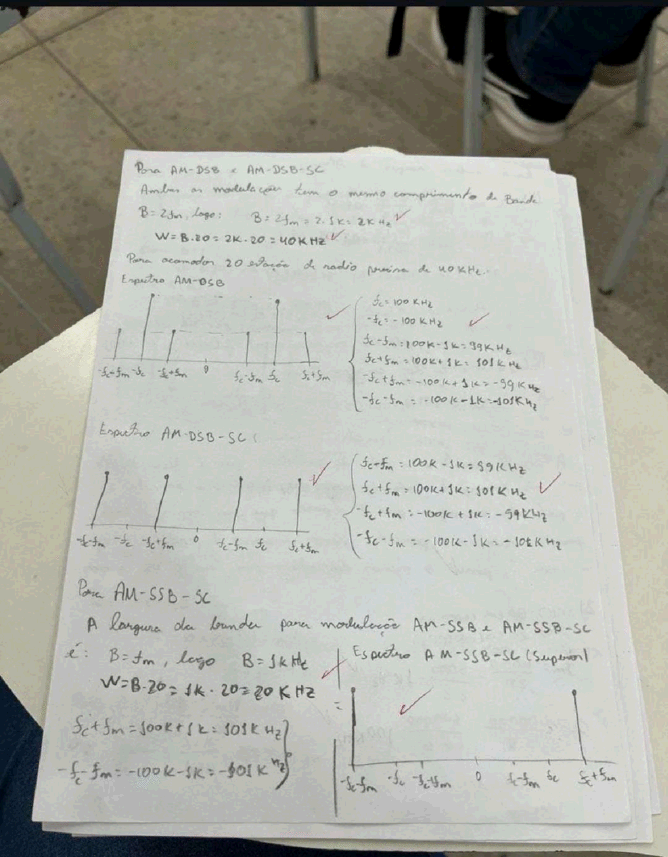 Para AM-DSB e AM-DSB-SC
Ambas as modulações tem o mesmo comprimento de Banda
B=2fm, logo: B=2fm=2.1k=2KHz
W=B.20=2K.20=40KHz
Para acomodar 20 estação de radio precisa de 40KHz.
Espectro AM-DSB
fc=100KHz
-fc=-100KHz
fc-fm=100K-1K=99KHz
fc+fm=100K+1K=101KHz
-fc+fm=-100K+1K=-99KHz
-fc-fm=-100K-1K=-101KHz
-fc-fm -fc -fc+fm 0 fc-fm fc fc+fm
Espectro AM-DSB-SC:
fc-fm=100K-1K=99KHz
fc+fm=100K+1K=101KHz
-fc+fm=-100K+1K=-99KHz
-fc-fm=-100K-1K=-101KHz
-fc-fm -fc -fc+fm 0 fc-fm fc fc+fm
Para AM-SSB-SC
A largura da banda para modulação AM-SSB e AM-SSB-SC
é: B=fm, logo B=1KHz
W=B.20=1K.20=20KHz
fc+fm=100K+1K=101KHz
-fc-fm=-100K-1K=-101KHz
Espectro AM-SSB-SC (Superior)
-fc-fm -fc 0 fc-fm fc fc+fm